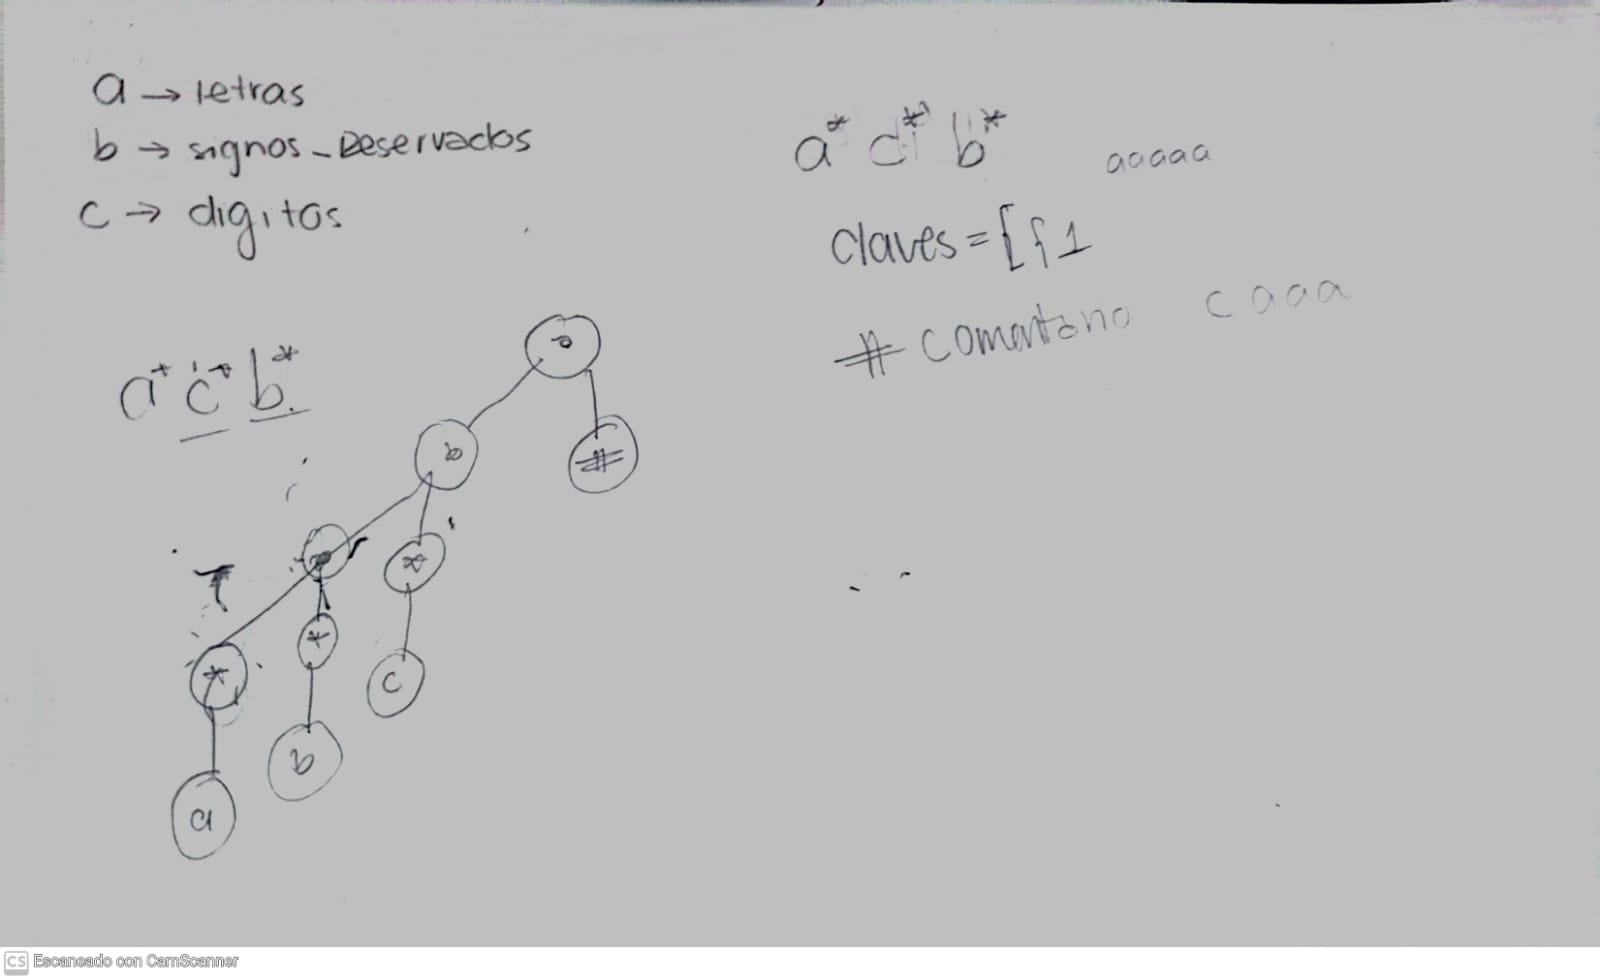 a → letras
b → signos_Reservados
c → digitos
a* c* b*
a* c* b*
aaaaa
claves = [{1
# comentario
c aaa
o
b
#
*
*
*
a
b
c
CS Escaneado con CamScanner